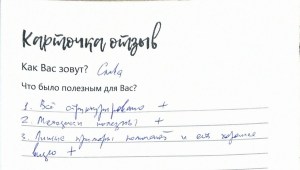 Карточка отзыв
Как Вас зовут? Слава
Что было полезным для Вас?
1. Всё структурировано +
2. Методики полезны! +
3. Личные примеры помогают и его хорошее
видео +